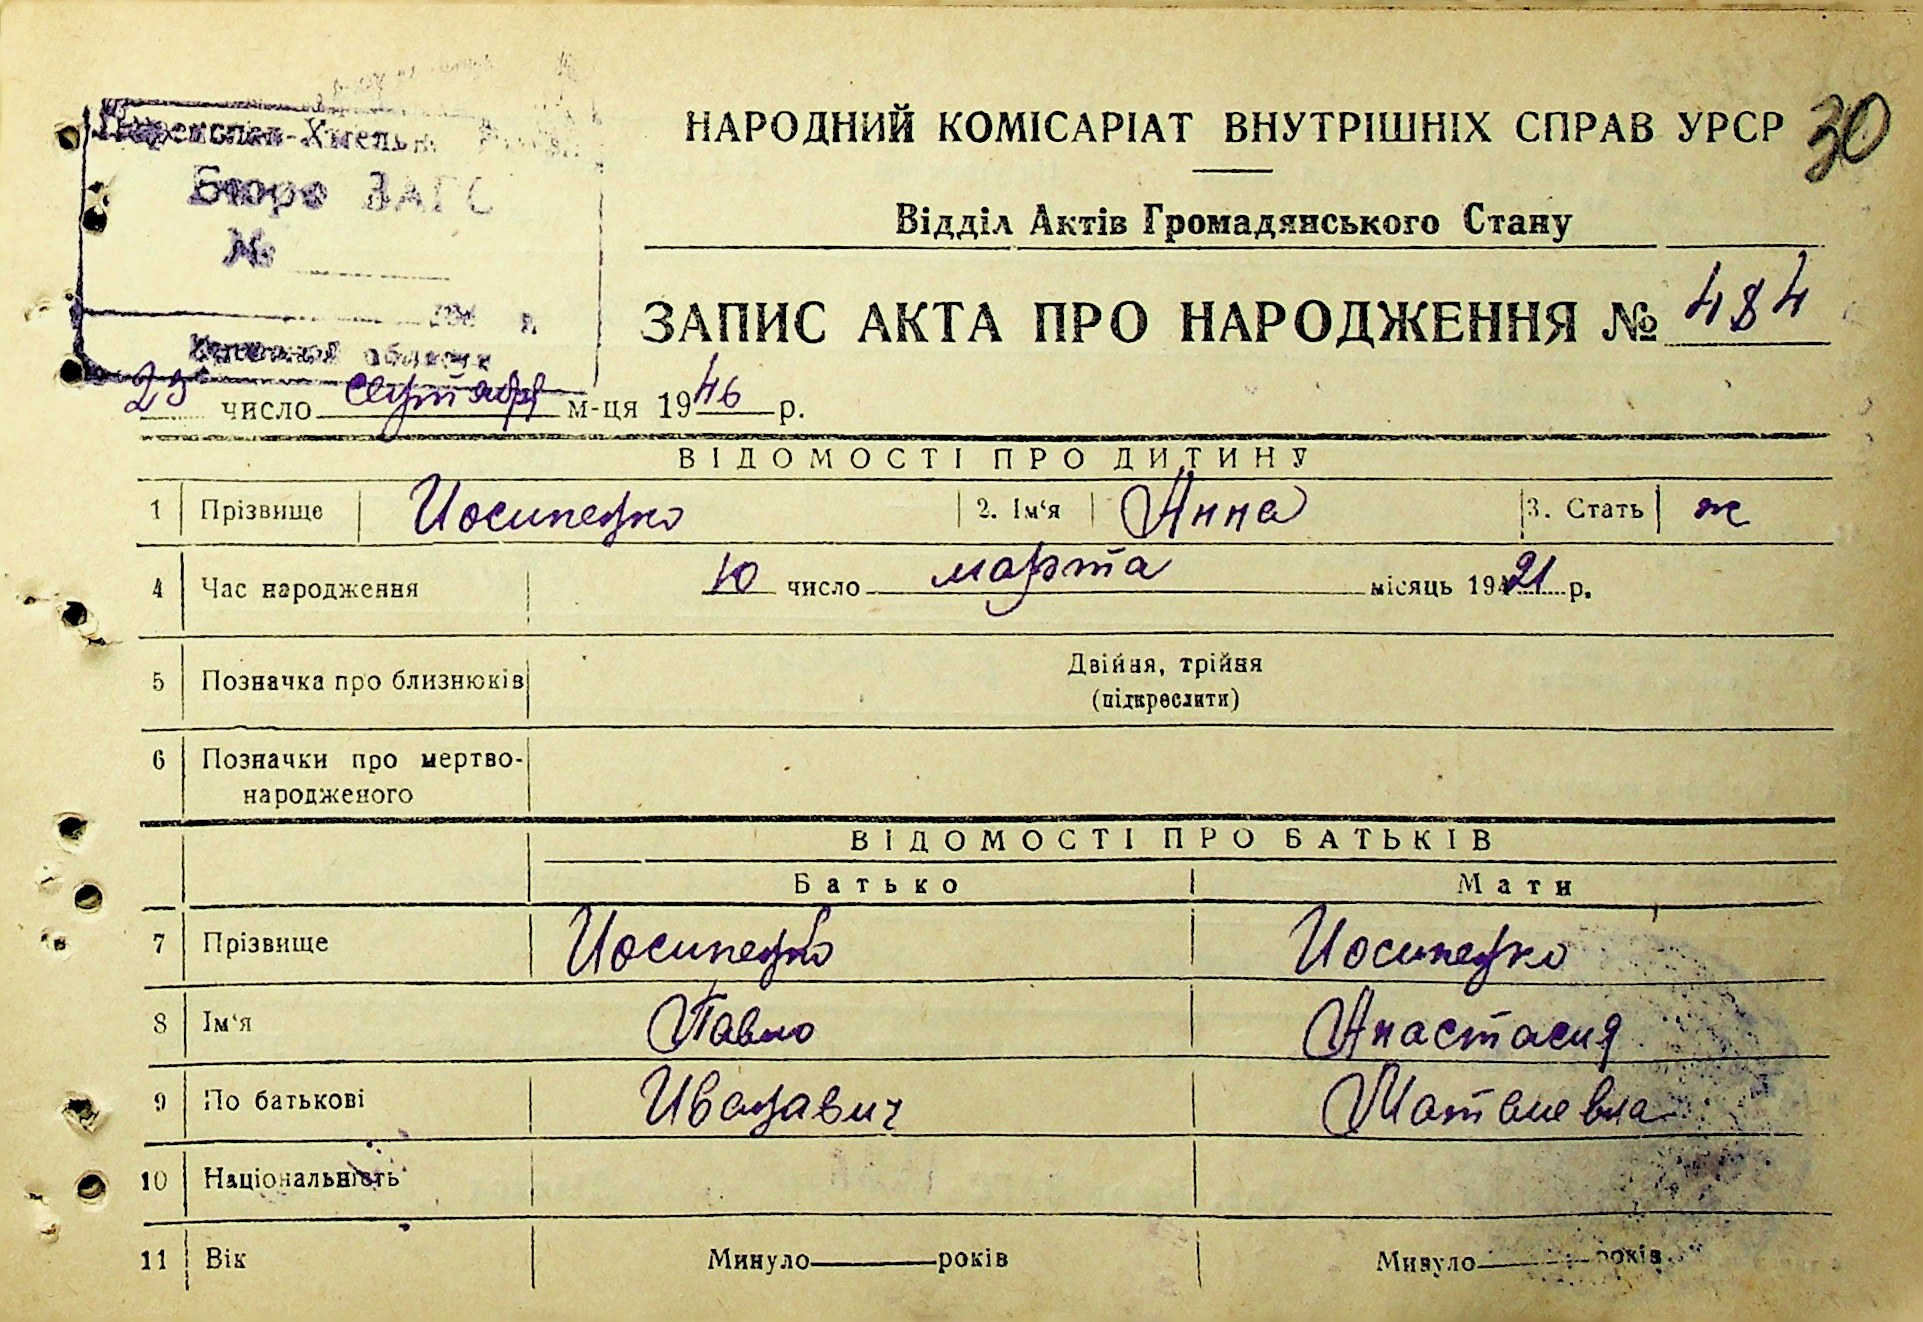 30
Переяслав-Хмельн
Бюро ЗАГС
№
194 р.
Киевской области
НАРОДНИЙ КОМІСАРІАТ ВНУТРІШНІХ СПРАВ УРСР
Відділ Актів Громадянського Стану
ЗАПИС АКТА ПРО НАРОДЖЕННЯ № 484
23 число сентября м-ця 1946 р.
ВІДОМОСТІ ПРО ДИТИНУ
1 Прізвище Иосипенко 2. Ім'я Анна 3. Стать ж
4 Час народження 10 число марта місяць 1921 р.
5 Позначка про близнюків Двійня, трійня
(підкреслити)
6 Позначки про мертво-
народженого
ВІДОМОСТІ ПРО БАТЬКІВ
Батько Мати
7 Прізвище Иосипенко Иосипенко
8 Ім'я Павло Анастасия
9 По батькові Иванавич Матвиевна
10 Національність
11 Вік Минуло років Минуло років